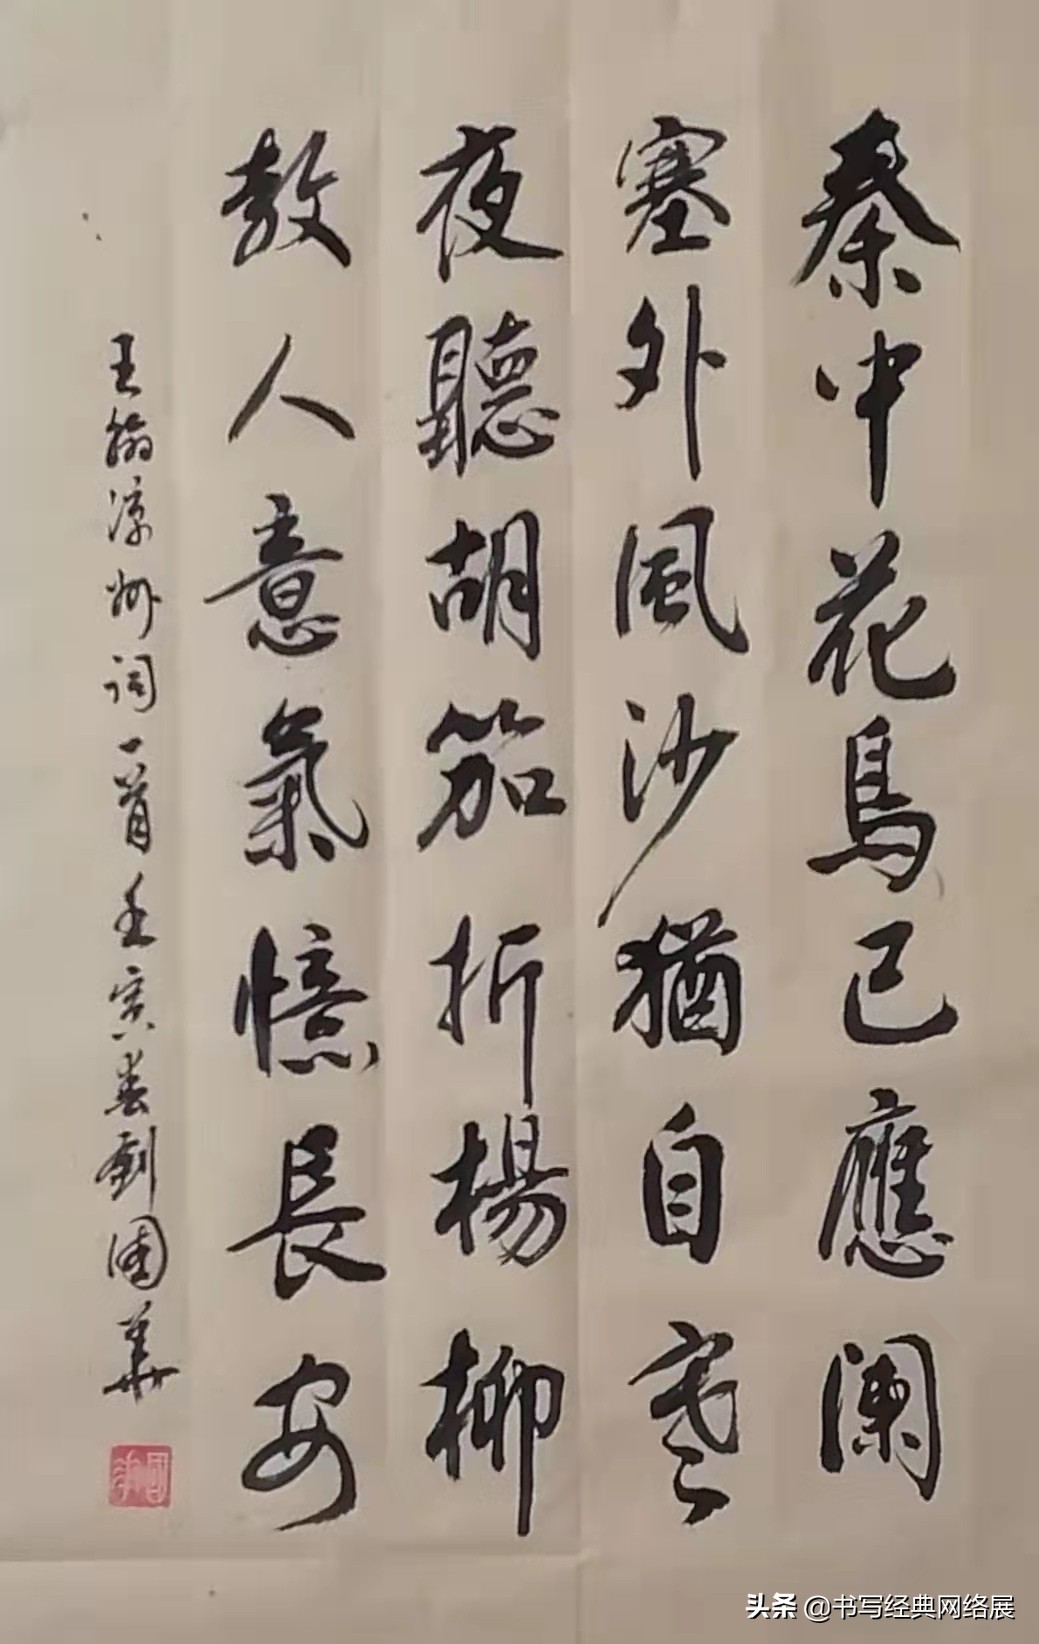 秦中花鳥已應闌
塞外風沙猶自寒
夜聽胡笳折楊柳
教人意氣憶長安
王翰涼州詞一首壬寅春劉國華
國華
头条 @书写经典网络展